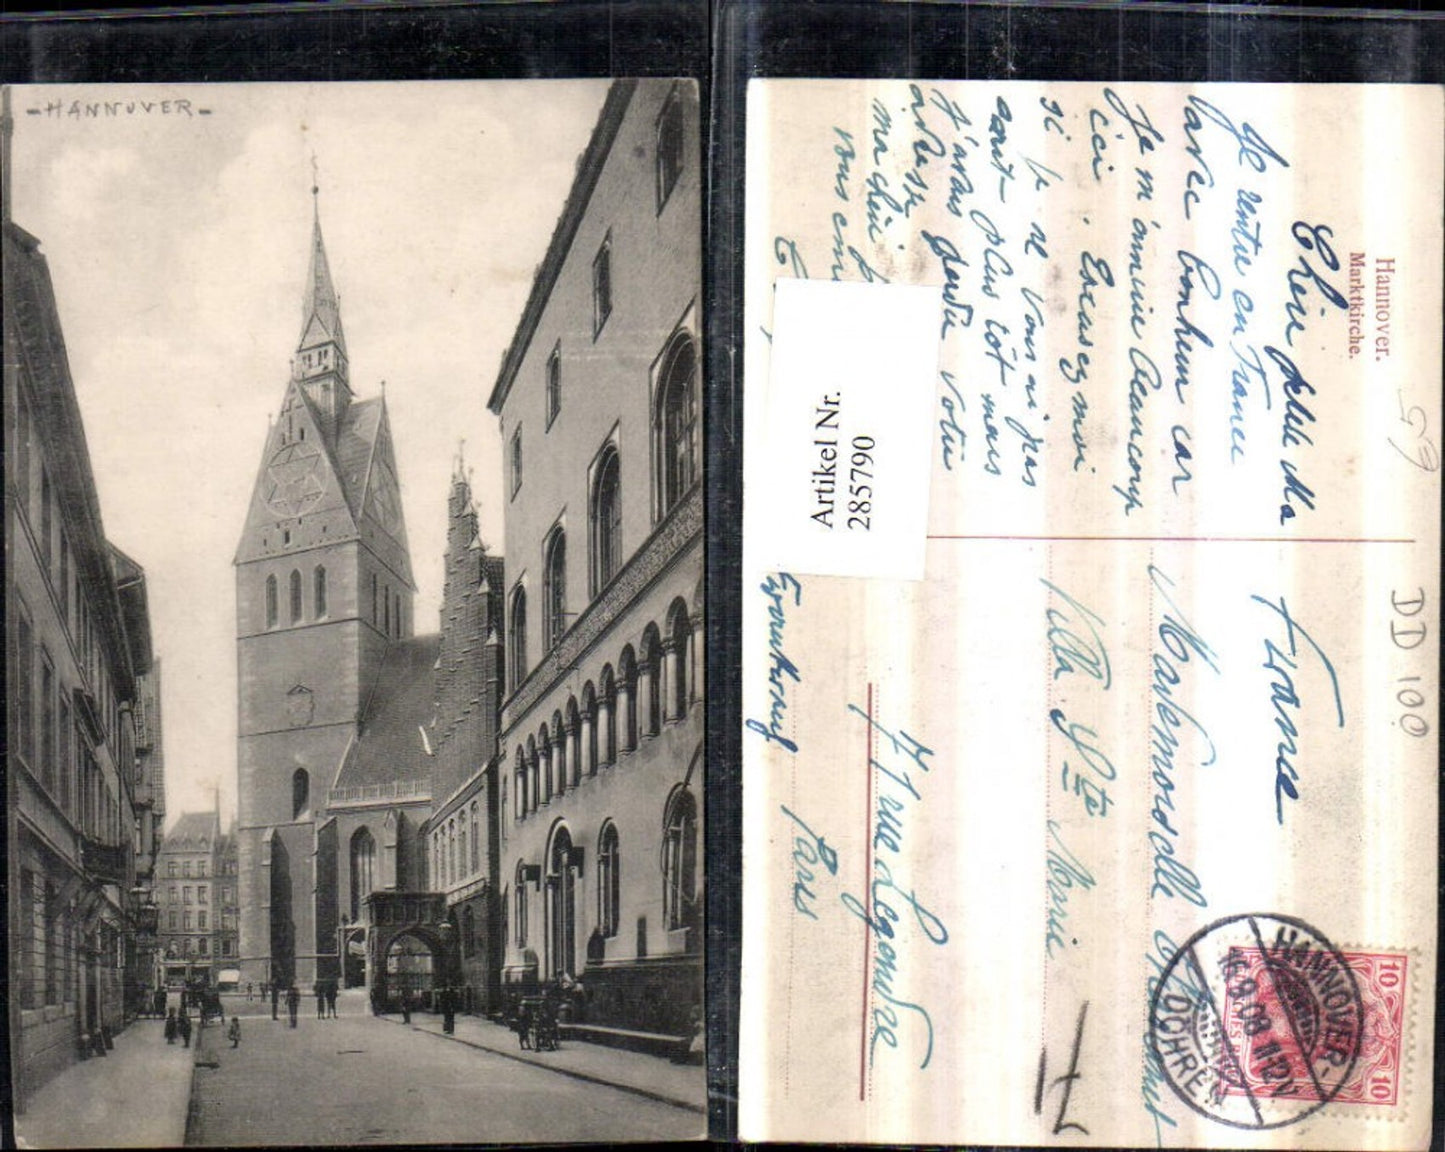 -HANNOVER-
Hannover.
Marktkirche.
59
DD 100
Chère petite Ma
Je rentre en France
avec bonheur car
Je m'ennuie beaucoup
ici. Excusez moi
si je ne vous ai pas
écrit plus tôt mais
j'avais perdu votre
adresse
ma chère
vous em
Artikel Nr.
285790
France
Mademoiselle
Villa Ste Marie
71 rue Legendre
Paris
HANNOVER-
16.9.08. 11-12V
DÖHREN
10
10